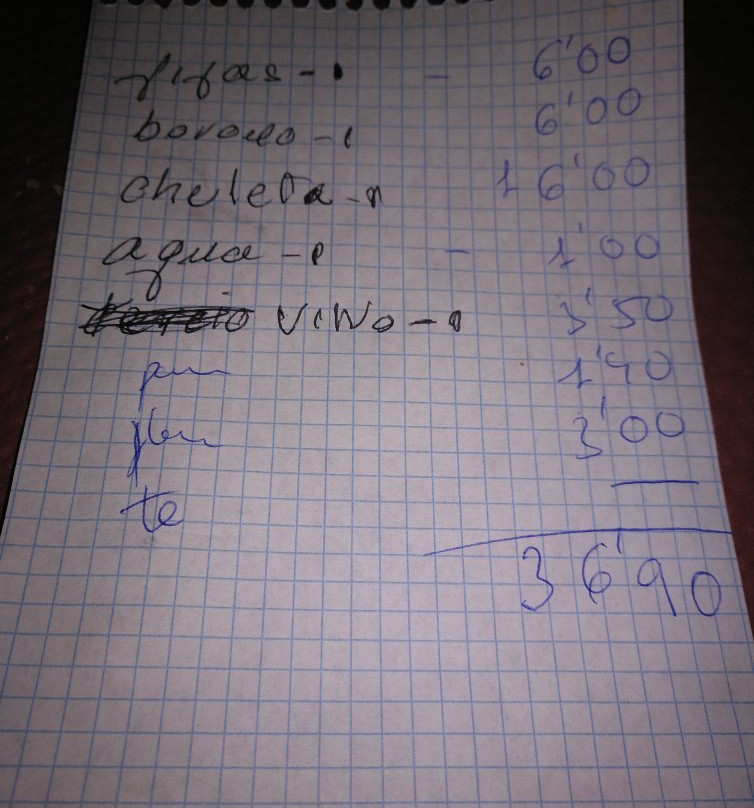 - 6'00
borono - 1 6'00
chuleta - 1 16'00
agua - 1 - 1'00
VINo - 1 3'50
pan 1'40
flan 3'00
te —
36'90